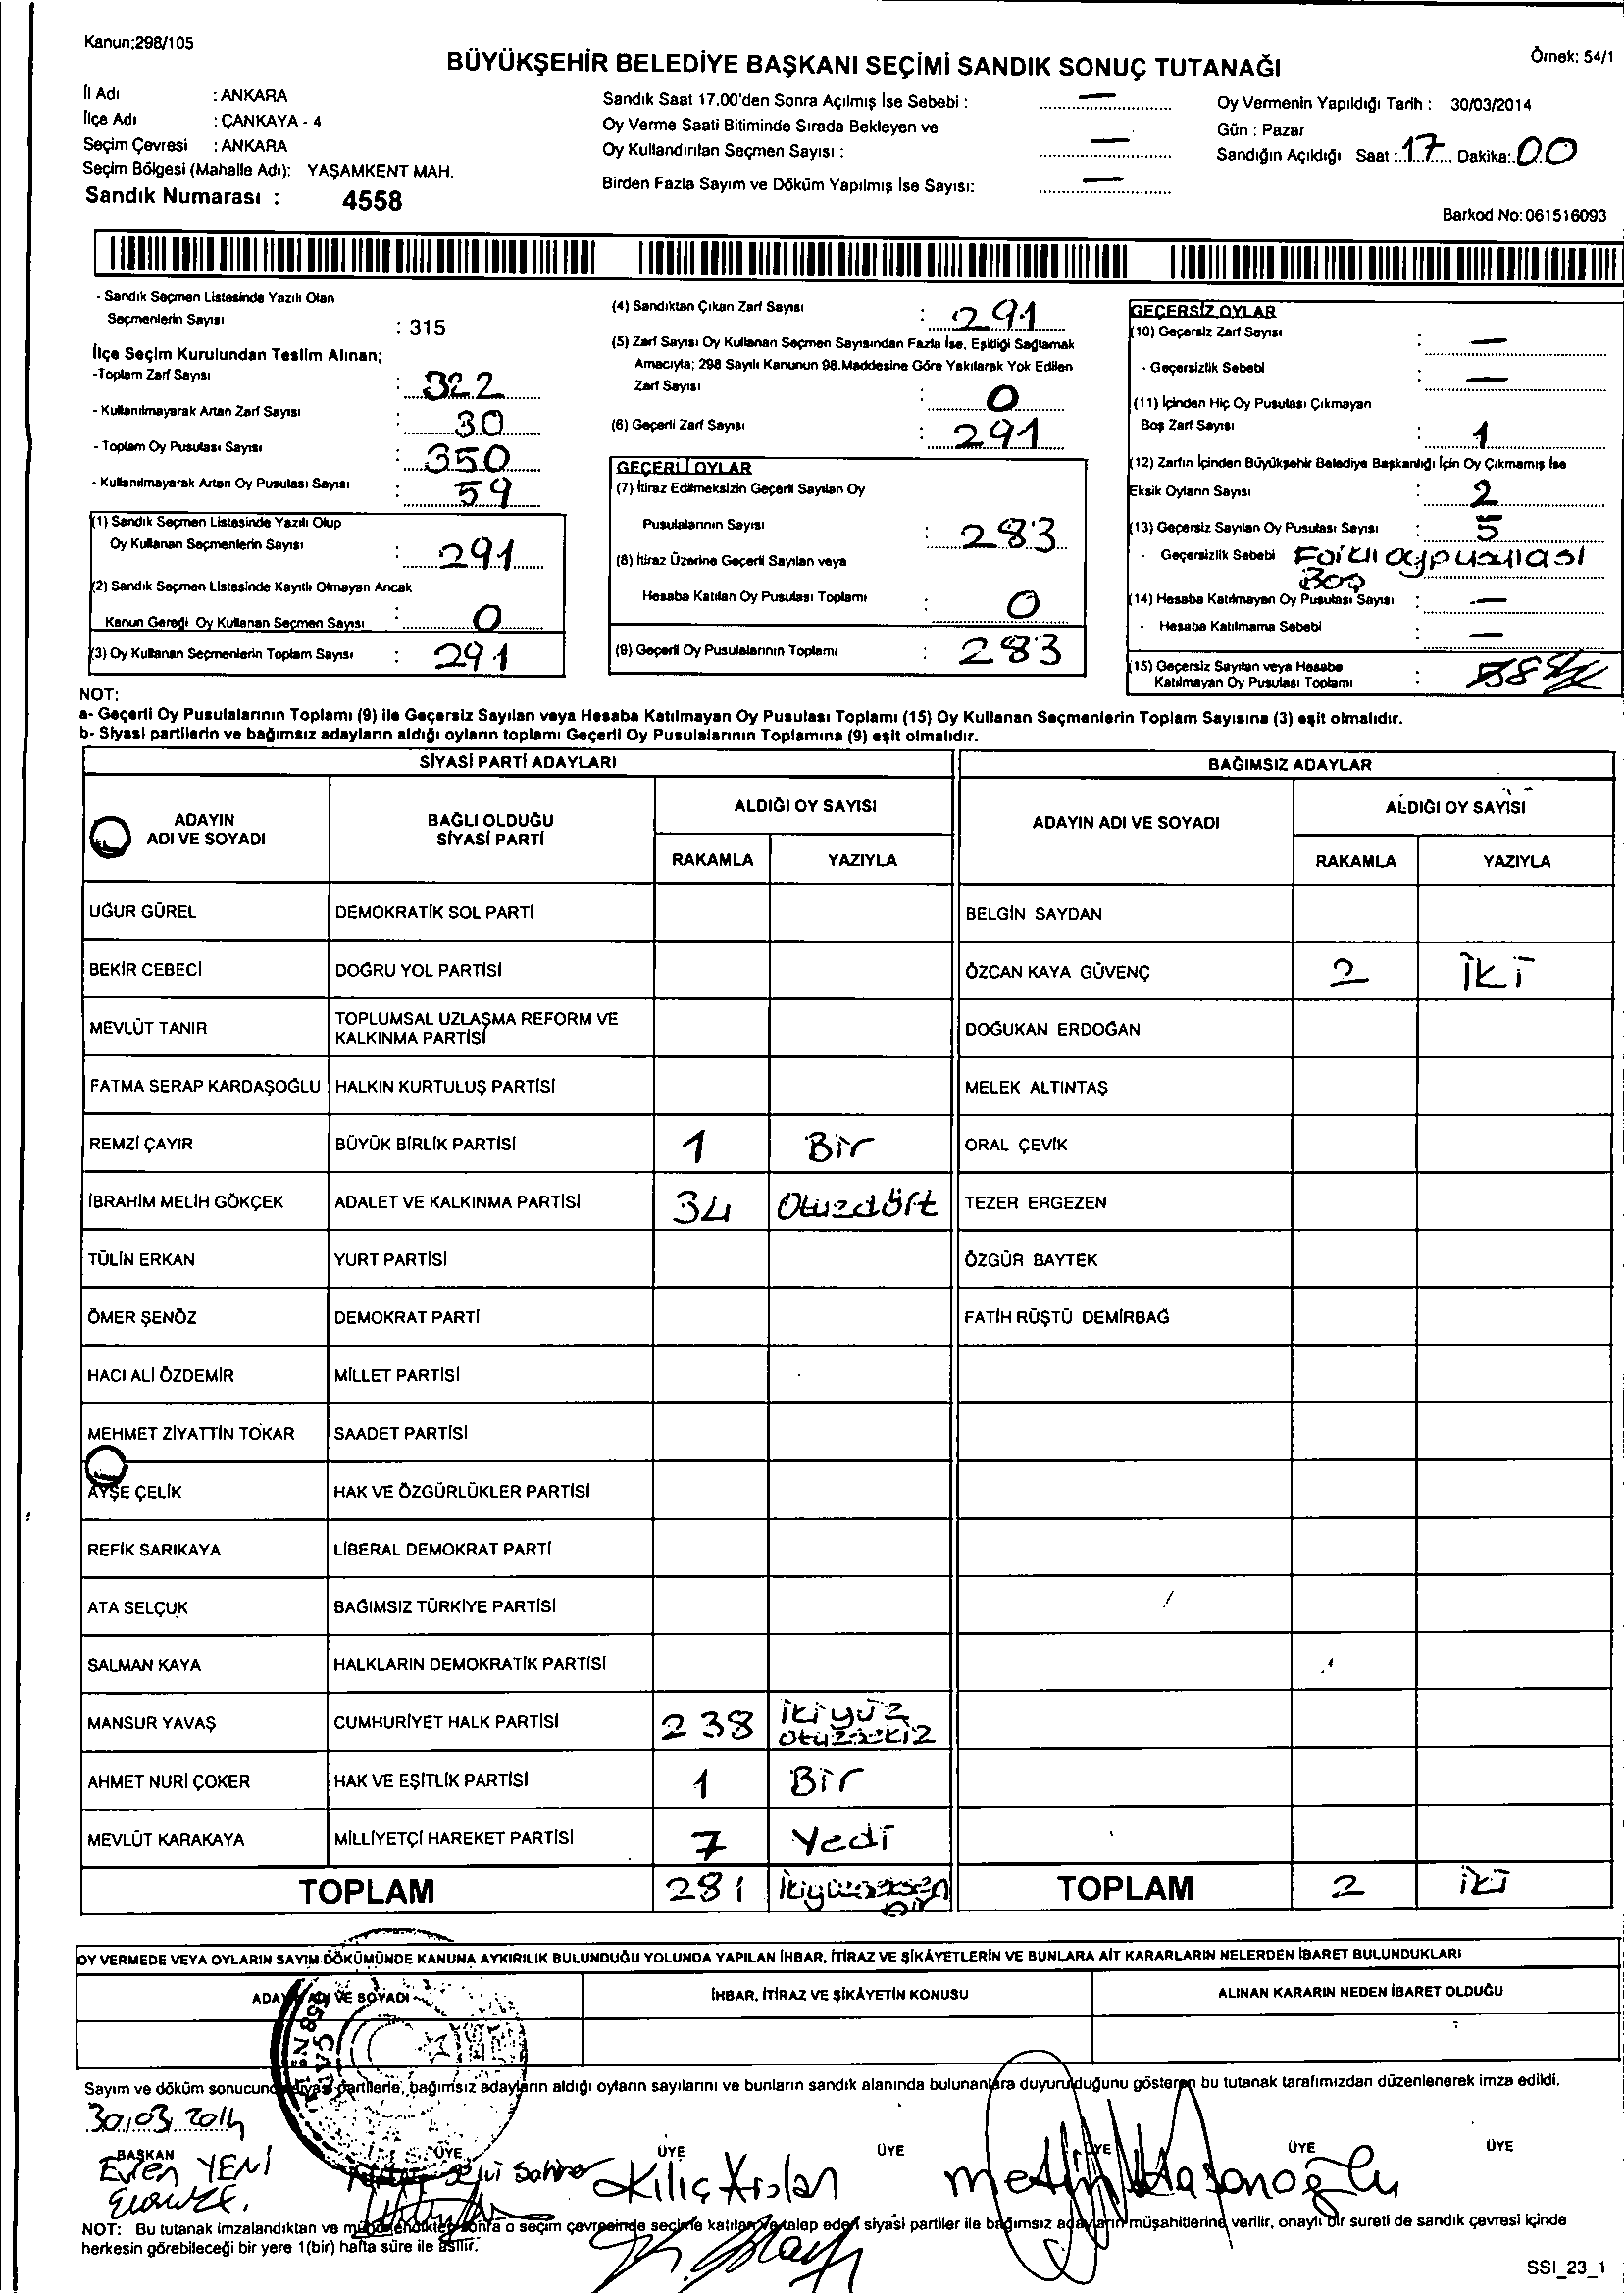 Kanun:298/105
BÜYÜKŞEHİR BELEDİYE BAŞKANI SEÇİMİ SANDIK SONUÇ TUTANAĞI
Örnek: 54/1
İl Adı : ANKARA
İlçe Adı : ÇANKAYA - 4
Seçim Çevresi : ANKARA
Seçim Bölgesi (Mahalle Adı): YAŞAMKENT MAH.
Sandık Numarası : 4558
Sandık Saat 17.00'den Sonra Açılmış İse Sebebi : —
Oy Verme Saati Bitiminde Sırada Bekleyen ve
Oy Kullandırılan Seçmen Sayısı : —
Birden Fazla Sayım ve Döküm Yapılmış İse Sayısı: —
Oy Vermenin Yapıldığı Tarih : 30/03/2014
Gün : Pazar
Sandığın Açıldığı Saat : 17 Dakika: 00
Barkod No: 061516093
- Sandık Seçmen Listesinde Yazılı Olan
Seçmenlerin Sayısı : 315
İlçe Seçim Kurulundan Teslim Alınan;
-Toplam Zarf Sayısı : 322
- Kullanılmayarak Artan Zarf Sayısı : 30
- Toplam Oy Pusulası Sayısı : 350
- Kullanılmayarak Artan Oy Pusulası Sayısı : 59
(1) Sandık Seçmen Listesinde Yazılı Olup
Oy Kullanan Seçmenlerin Sayısı : 291
(2) Sandık Seçmen Listesinde Kayıtlı Olmayan Ancak
Kanun Gereği Oy Kullanan Seçmen Sayısı : 0
(3) Oy Kullanan Seçmenlerin Toplam Sayısı : 291
(4) Sandıktan Çıkan Zarf Sayısı : 291
(5) Zarf Sayısı Oy Kullanan Seçmen Sayısından Fazla İse, Eşitliği Sağlamak
Amacıyla; 298 Sayılı Kanunun 98.Maddesine Göre Yakılarak Yok Edilen
Zarf Sayısı : 0
(6) Geçerli Zarf Sayısı : 291
GEÇERLİ OYLAR
(7) İtiraz Edilmeksizin Geçerli Sayılan Oy
Pusulalarının Sayısı : 283
(8) İtiraz Üzerine Geçerli Sayılan veya
Hesaba Katılan Oy Pusulası Toplamı : 0
(9) Geçerli Oy Pusulalarının Toplamı : 283
GEÇERSİZ OYLAR
(10) Geçersiz Zarf Sayısı : —
- Geçersizlik Sebebi : —
(11) İçinden Hiç Oy Pusulası Çıkmayan
Boş Zarf Sayısı : 1
(12) Zarfın İçinden Büyükşehir Belediye Başkanlığı İçin Oy Çıkmamış İse
Eksik Oyların Sayısı : 2
(13) Geçersiz Sayılan Oy Pusulası Sayısı : 5
- Geçersizlik Sebebi Farklı oy pusulası
Boş
(14) Hesaba Katılmayan Oy Pusulası Sayısı : —
- Hesaba Katılmama Sebebi : —
(15) Geçersiz Sayılan veya Hesaba
Katılmayan Oy Pusulası Toplamı :
NOT:
a- Geçerli Oy Pusulalarının Toplamı (9) ile Geçersiz Sayılan veya Hesaba Katılmayan Oy Pusulası Toplamı (15) Oy Kullanan Seçmenlerin Toplam Sayısına (3) eşit olmalıdır.
b- Siyasi partilerin ve bağımsız adayların aldığı oyların toplamı Geçerli Oy Pusulalarının Toplamına (9) eşit olmalıdır.
SİYASİ PARTİ ADAYLARI BAĞIMSIZ ADAYLAR
ADAYIN
ADI VE SOYADI
BAĞLI OLDUĞU
SİYASİ PARTİ
ALDIĞI OY SAYISI
RAKAMLA YAZIYLA
ADAYIN ADI VE SOYADI
ALDIĞI OY SAYISI
RAKAMLA YAZIYLA
UĞUR GÜREL DEMOKRATİK SOL PARTİ BELGİN SAYDAN
BEKİR CEBECİ DOĞRU YOL PARTİSİ ÖZCAN KAYA GÜVENÇ 2 İKİ
MEVLÜT TANIR TOPLUMSAL UZLAŞMA REFORM VE
KALKINMA PARTİSİ DOĞUKAN ERDOĞAN
FATMA SERAP KARDAŞOĞLU HALKIN KURTULUŞ PARTİSİ MELEK ALTINTAŞ
REMZİ ÇAYIR BÜYÜK BİRLİK PARTİSİ 1 Bir ORAL ÇEVİK
İBRAHİM MELİH GÖKÇEK ADALET VE KALKINMA PARTİSİ 34 Otuzdört TEZER ERGEZEN
TÜLİN ERKAN YURT PARTİSİ ÖZGÜR BAYTEK
ÖMER ŞENÖZ DEMOKRAT PARTİ FATİH RÜŞTÜ DEMİRBAĞ
HACI ALİ ÖZDEMİR MİLLET PARTİSİ
MEHMET ZİYATTİN TOKAR SAADET PARTİSİ
AYŞE ÇELİK HAK VE ÖZGÜRLÜKLER PARTİSİ
REFİK SARIKAYA LİBERAL DEMOKRAT PARTİ
ATA SELÇUK BAĞIMSIZ TÜRKİYE PARTİSİ
SALMAN KAYA HALKLARIN DEMOKRATİK PARTİSİ
MANSUR YAVAŞ CUMHURİYET HALK PARTİSİ 238 ikiyüz
otuzsekiz
AHMET NURİ ÇOKER HAK VE EŞİTLİK PARTİSİ 1 Bir
MEVLÜT KARAKAYA MİLLİYETÇİ HAREKET PARTİSİ 7 Yedi
TOPLAM 281 ikiyüzseksen
bir TOPLAM 2 iki
OY VERMEDE VEYA OYLARIN SAYIM DÖKÜMÜNDE KANUNA AYKIRILIK BULUNDUĞU YOLUNDA YAPILAN İHBAR, İTİRAZ VE ŞİKÂYETLERİN VE BUNLARA AİT KARARLARIN NELERDEN İBARET BULUNDUKLARI
ADAYIN ADI VE SOYADI İHBAR, İTİRAZ VE ŞİKÂYETİN KONUSU ALINAN KARARIN NEDEN İBARET OLDUĞU
Sayım ve döküm sonucunda siyasi partilerle, bağımsız adayların aldığı oyların sayılarını ve bunların sandık alanında bulunanlara duyurulduğunu gösteren bu tutanak tarafımızdan düzenlenerek imza edildi.
30.03.2014
BAŞKAN ÜYE ÜYE ÜYE ÜYE ÜYE ÜYE
Evren YENİ Kılıç Arslan Metin Hasanoğlu
NOT: Bu tutanak imzalandıktan ve mühürlendikten sonra o seçim çevresinde seçime katılan ve talep eden siyasi partiler ile bağımsız adayların müşahitlerine verilir, onaylı bir sureti de sandık çevresi içinde
herkesin görebileceği bir yere 1(bir) hafta süre ile asılır.
SSI_23_1